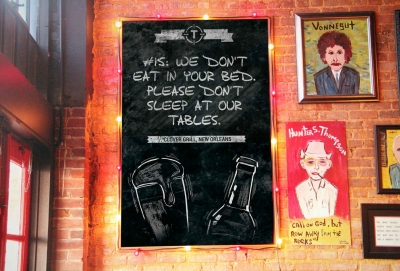 T
#15: WE DON'T
EAT IN YOUR BED.
PLEASE DON'T
SLEEP AT OUR
TABLES.
CLOVER GRILL, NEW ORLEANS
VONNEGUT
HUNTER S. THOMPSON
CALL ON GOD, but
ROW AWAY FROM THE
ROCKS